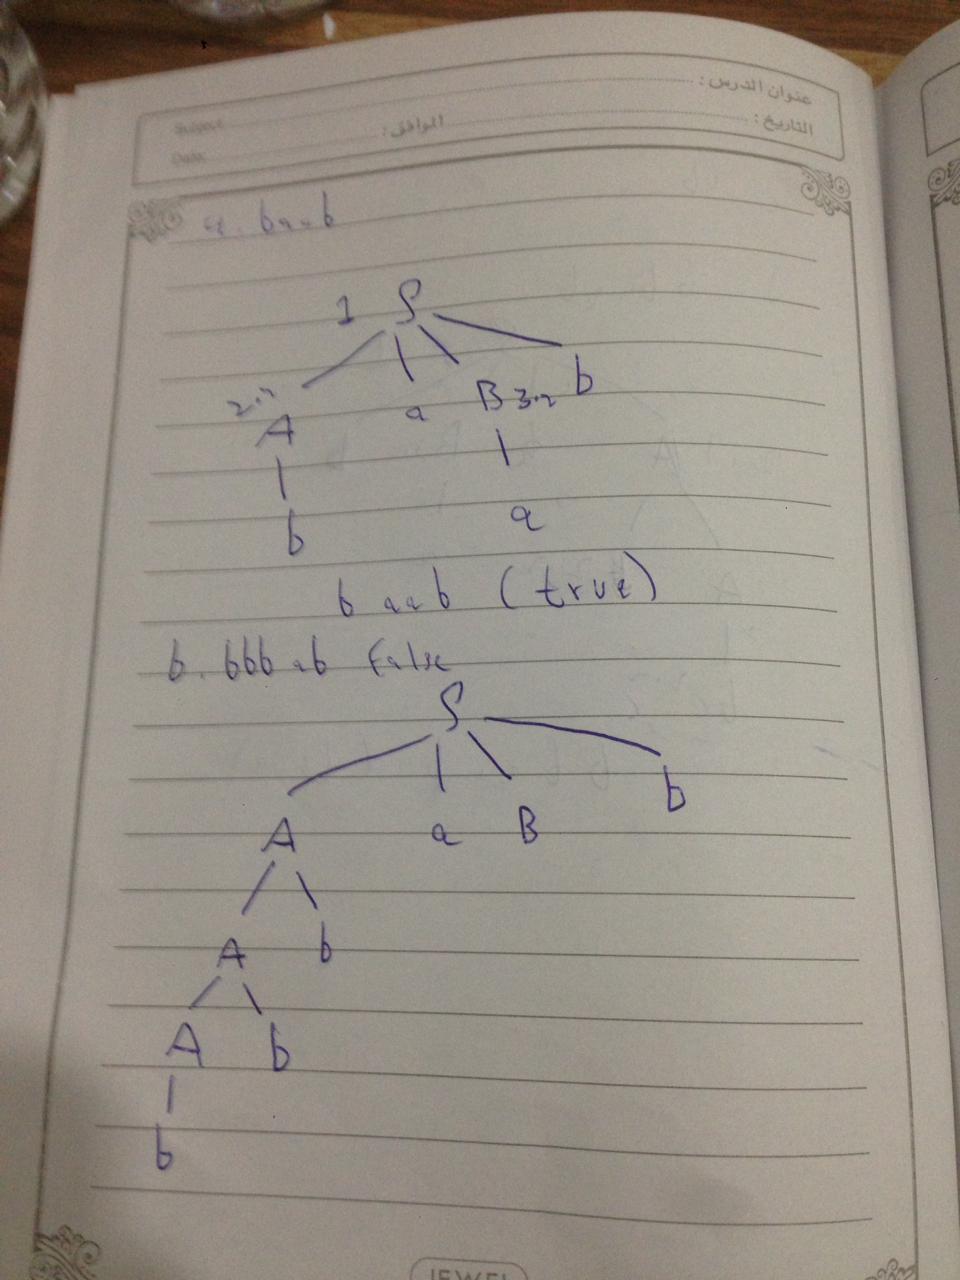 عنوان الدرس :
Subject
التاريخ : الموافق :
Date
a. baab
1 S
2.2 A a B 3.2 b
b a
b aab (true)
b. bbb ab False
S
A a B b
A b
A b
b
JEWEL